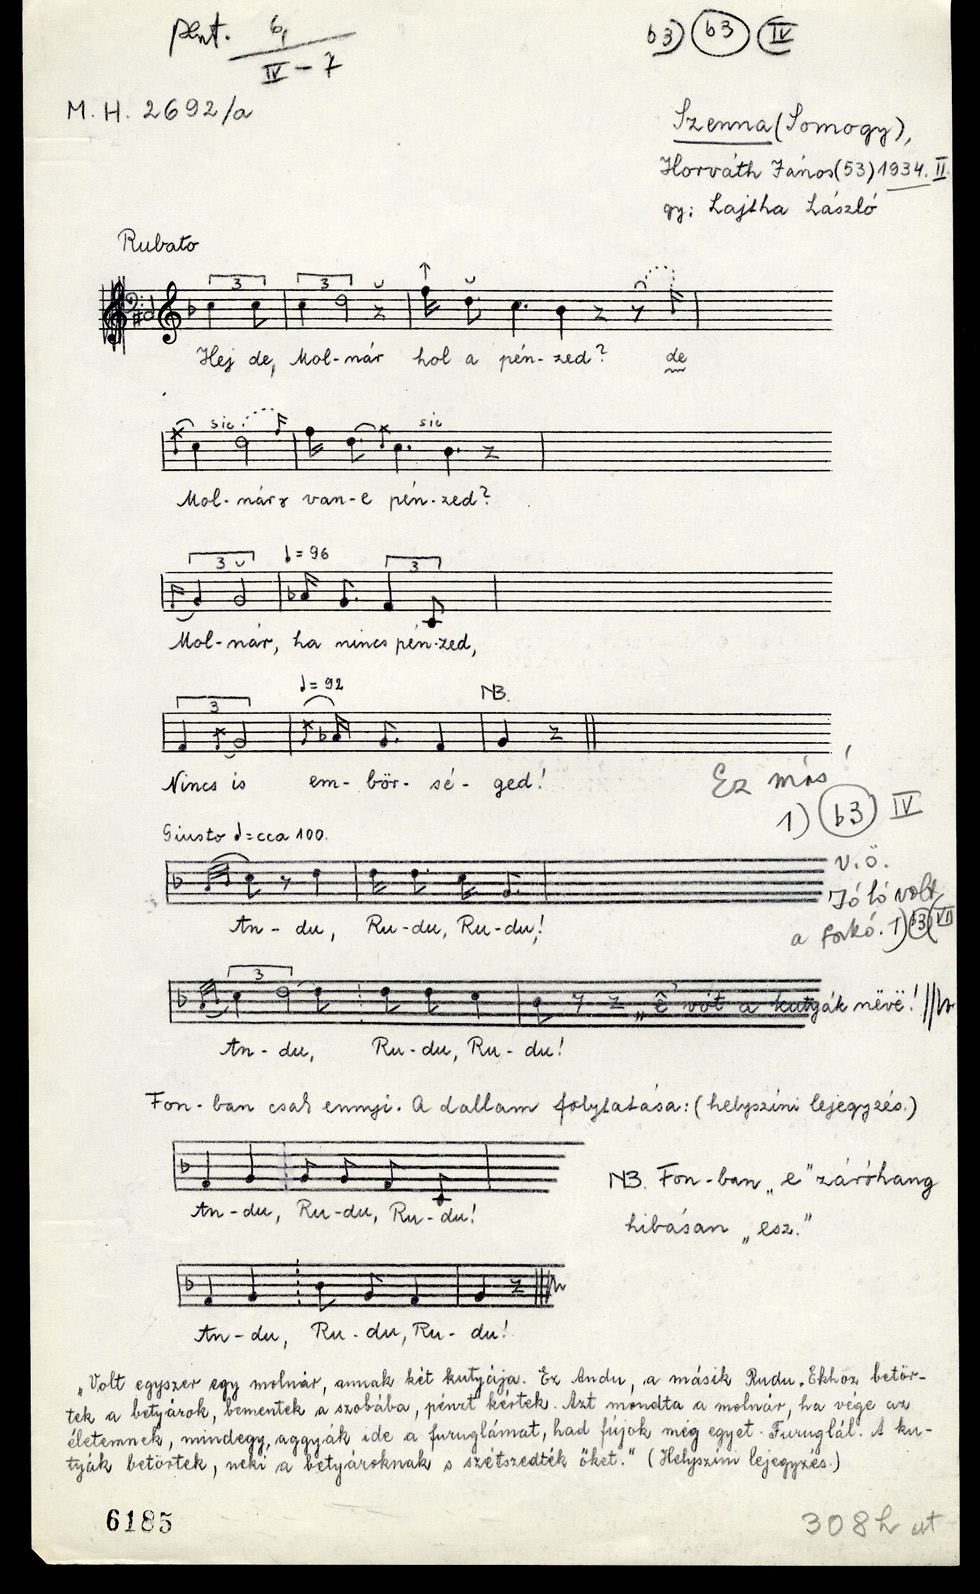 Pent. 6,
IV - 7
b3) (b3) (IV)
M. H. 2692/a
Szenna (Somogy),
Horváth János (53) 1934. II.
gy: Lajtha László
Rubato
3 3
Hej de, Mol-nár hol a pén-zed? de
sic sic
Mol-nár van-e pén-zed?
3 = 96 3
Mol-nár, ha nincs pén-zed,
3 = 92 NB.
Nincs is em-bör-sé-ged!
Ez más!
1) (b3) IV
v.ö.
Jó ló volt
a fakó. 1) (b3) (VI)
Giusto = cca 100.
An-du, Ru-du, Ru-du!
3
„ë vót a kutyák nëvë!
An-du, Ru-du, Ru-du!
Fon-ban csak ennyi. A dallam folytatása: (helyszíni lejegyzés.)
An-du, Ru-du, Ru-du!
NB. Fon-ban „e" záróhang
hibásan „esz."
An-du, Ru-du, Ru-du!
„Volt egyszer egy molnár, annak két kutyája. Ez Andu, a másik Rudu. Ekhöz betör-
tek a betyárok, bementek a szobába, pénzt kértek. Azt mondta a molnár, ha vége az
életemnek, mindegy, aggyák ide a furuglámat, had fújok még egyet. Furuglál. A ku-
tyák betörtek, neki a betyároknak s szétszedték őket." (Helyszíni lejegyzés.)
6185
308h